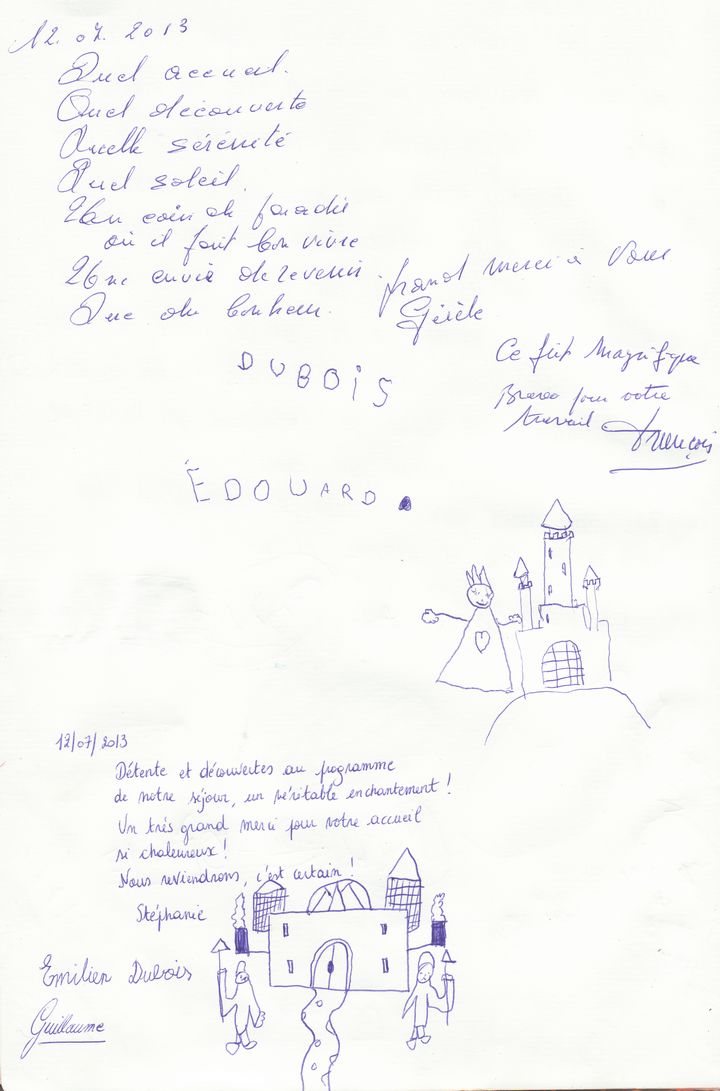 12.07.2013
Quel accueil.
Quel découverte
Quelle sérénité
Quel soleil.
Un coin de paradis
où il fait bon vivre
Une envie de revenir.
Que du bonheur.
grand merci à Vous
Gisèle
Ce fut Magnifique
Bravo pour votre
travail François
DUBOIS
ÉDOUARD.
12/07/2013
Détente et découvertes au programme
de notre séjour, un véritable enchantement !
Un très grand merci pour votre accueil
si chaleureux !
Nous reviendrons, c'est certain !
Stéphanie
Emilien Dubois
Guillaume